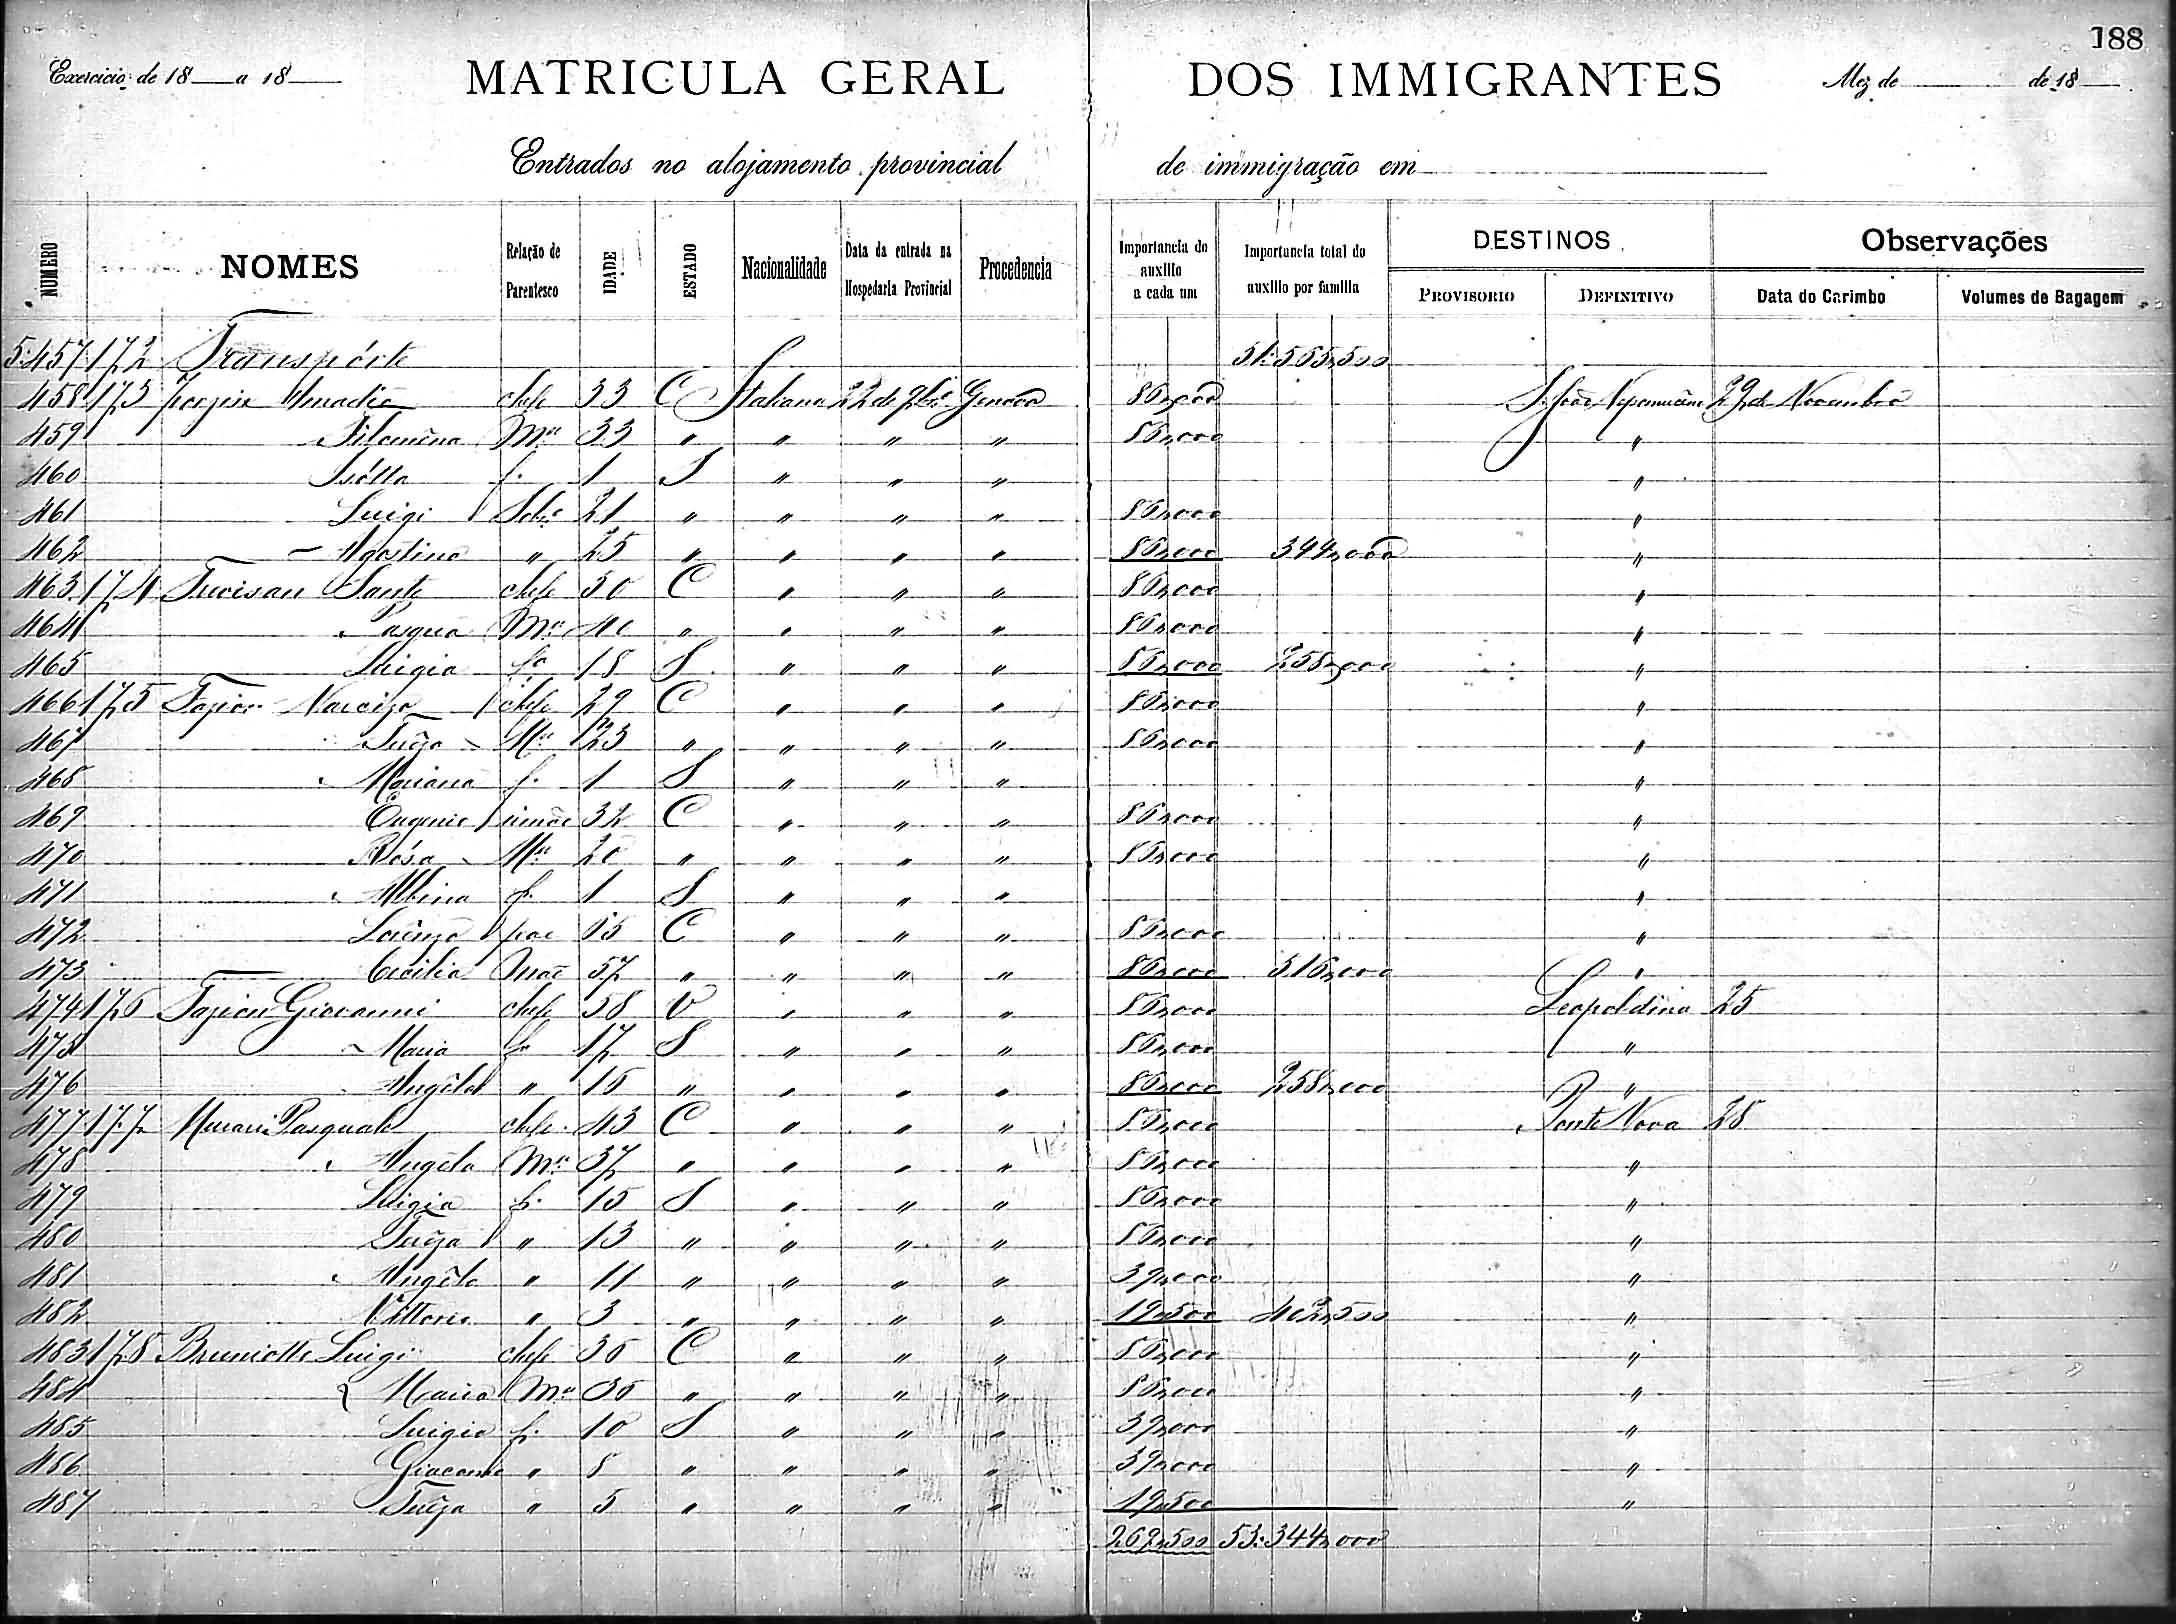 188
Exercicio de 18 a 18 MATRICULA GERAL DOS IMMIGRANTES Mez de de 18
Entrados no alojamento provincial de immigração em
NUMERO NOMES Relação de Parentesco IDADE ESTADO Nacionalidade Data da entrada na Hospedaria Provincial Procedencia Importancia do auxilio a cada um Importancia total do auxilio por familia DESTINOS PROVISORIO DEFINITIVO Observações Data do Carimbo Volumes de Bagagem
5.457 172 Transpórte 51:565,500
458 173 Amadio chefe 33 C Italiana 22 de 9bro Genova 86,000 S. João Nepomuceno 29 de Novembro
459 Filomena Mer 33 " " " " 86,000 "
460 f. 1 S " " " "
461 Luigi 21 " " " " 86,000 "
462 Agostino " 25 " " " " 86,000 344,000 "
463 174 Sante chefe 50 C " " " 86,000 "
464 Pasqua Mer " " " " 86,000 "
465 Luigia fa 18 S " " " 86,000 258,000 "
466 175 Narcizo chefe 29 C " " " 86,000 "
467 Mer 23 " " " " 86,000 "
468 Mariana f. 1 S " " " "
469 Eugenio irmão C " " " 86,000 "
470 Rósa Mer " " " " 86,000 "
471 Albina f. 1 S " " " "
472 Lorenzo pae C " " " 86,000 "
473 Cecilia Mãe 57 " " " " 86,000 516,000 "
474 176 Giovanni chefe 58 V " " " 86,000 Leopoldina 25
475 Maria fa 17 S " " " 86,000 "
476 Angéla " " " " " 86,000 258,000 "
477 177 Pasquale chefe 43 C " " " 86,000 Ponte Nova 28
478 Angéla Mer 37 " " " " 86,000 "
479 Luigia f. 15 S " " " 86,000 "
480 " 13 " " " " 86,000 "
481 Angélo " 11 " " " " 39,000 "
482 Vittorio " 3 " " " " 19,500 402,500 "
483 178 Luigi chefe C " " " 86,000 "
484 Maria Mer " " " " 86,000 "
485 Luigia f. 10 S " " " 39,000 "
486 Giacomo " 8 " " " " 39,000 "
487 " 5 " " " " 19,500 "
269,500 53:344,000